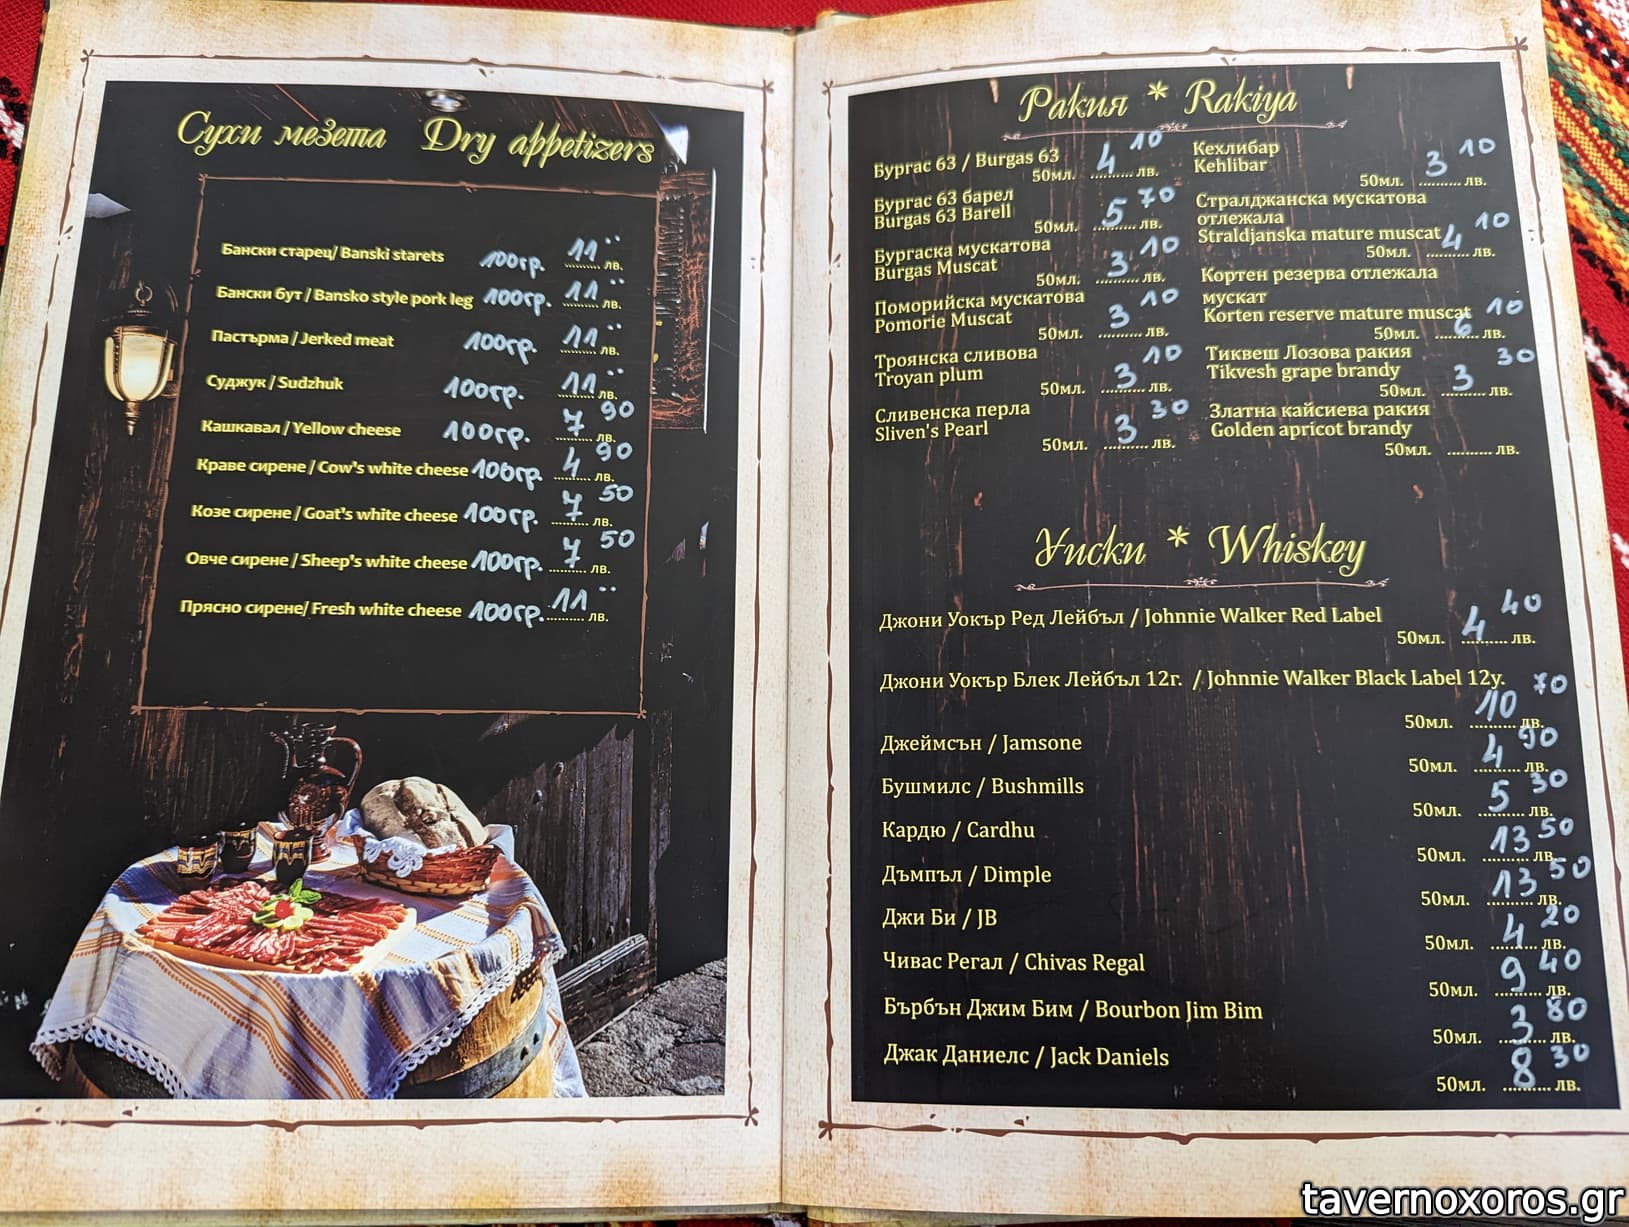 Сухи мезета Dry appetizers
Бански старец/ Banski starets 100гр. 11 ¨ .......... лв.
Бански бут / Bansko style pork leg 100гр. 11 ¨ .......... лв.
Пастърма / Jerked meat 100гр. 11 ¨ .......... лв.
Суджук / Sudzhuk 100гр. 11 ¨ .......... лв.
Кашкавал / Yellow cheese 100гр. 7 90 .......... лв.
Краве сирене / Cow's white cheese 100гр. 4 90 .......... лв.
Козе сирене / Goat's white cheese 100гр. 7 50 .......... лв.
Овче сирене / Sheep's white cheese 100гр. 7 50 .......... лв.
Прясно сирене/ Fresh white cheese 100гр. 11 ¨ .......... лв.
Ракия * Rakiya
Бургас 63 / Burgas 63
50мл. 4 10 .......... лв.
Бургас 63 барел
Burgas 63 Barell
50мл. 5 70 .......... лв.
Бургаска мускатова
Burgas Muscat
50мл. 3 10 .......... лв.
Поморийска мускатова
Pomorie Muscat
50мл. 3 10 .......... лв.
Троянска сливова
Troyan plum
50мл. 3 10 .......... лв.
Сливенска перла
Sliven's Pearl
50мл. 3 30 .......... лв.
Кехлибар
Kehlibar
50мл. 3 10 .......... лв.
Стралджанска мускатова
отлежала
Straldjanska mature muscat
50мл. 4 10 .......... лв.
Кортен резерва отлежала
мускат
Korten reserve mature muscat
50мл. 6 10 .......... лв.
Тиквеш Лозова ракия
Tikvesh grape brandy
50мл. 3 30 .......... лв.
Златна кайсиева ракия
Golden apricot brandy
50мл. .......... лв.
Уиски * Whiskey
Джони Уокър Ред Лейбъл / Johnnie Walker Red Label
50мл. 4 40 .......... лв.
Джони Уокър Блек Лейбъл 12г. / Johnnie Walker Black Label 12y.
50мл. 10 70 .......... лв.
Джеймсън / Jamsone
50мл. 4 90 .......... лв.
Бушмилс / Bushmills
50мл. 5 30 .......... лв.
Кардю / Cardhu
50мл. 13 50 .......... лв.
Дъмпъл / Dimple
50мл. 13 50 .......... лв.
Джи Би / JB
50мл. 4 20 .......... лв.
Чивас Регал / Chivas Regal
50мл. 9 40 .......... лв.
Бърбън Джим Бим / Bourbon Jim Bim
50мл. 3 80 .......... лв.
Джак Даниелс / Jack Daniels
50мл. 8 30 .......... лв.
tavernoxoros.gr